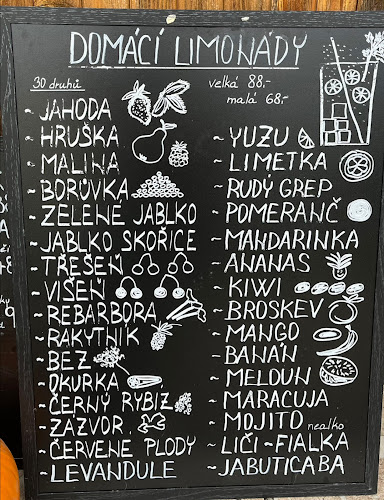 DOMÁCÍ LIMONÁDY
30 druhů
velká 88,-
malá 68,-
~ JAHODA
~ HRUŠKA
~ MALINA
~ BORŮVKA
~ ZELENÉ JABLKO
~ JABLKO SKOŘICE
~ TŘEŠEŇ
~ VIŠEŇ
~ REBARBORA
~ RAKYTNÍK
~ BEZ
~ OKURKA
~ ČERNÝ RYBÍZ
~ ZÁZVOR
~ ČERVENÉ PLODY
~ LEVANDULE
~ YUZU
~ LIMETKA
~ RUDÝ GREP
~ POMERANČ
~ MANDARINKA
~ ANANAS
~ KIWI
~ BROSKEV
~ MANGO
~ BANÁN
~ MELOUN
~ MARACUJA
~ MOJITO nealko
~ LIČI - FIALKA
~ JABUTICABA